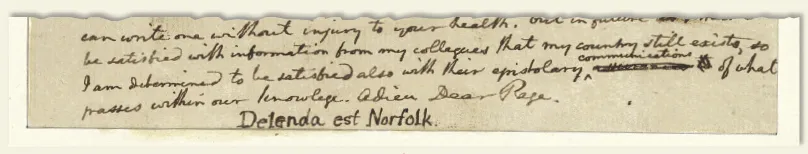 can write one without injury to your health. but in future
be satisfied with information from my collegues that my country still exists, so
I am determined to be satisfied also with their epistolary communications of what
passes within our knowlege. Adieu Dear Page.
Delenda est Norfolk.